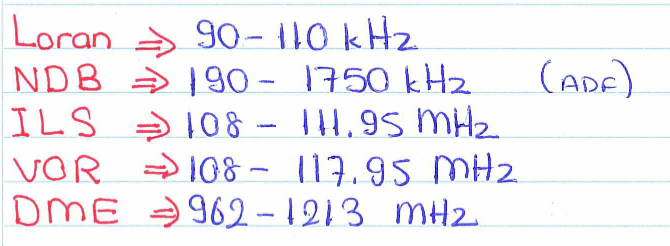 Loran ⇒ 90-110 kHz
NDB ⇒ 190 - 1750 kHz (ADF)
ILS ⇒ 108 - 111.95 MHz
VOR ⇒ 108 - 117.95 MHz
DME ⇒ 962-1213 MHz